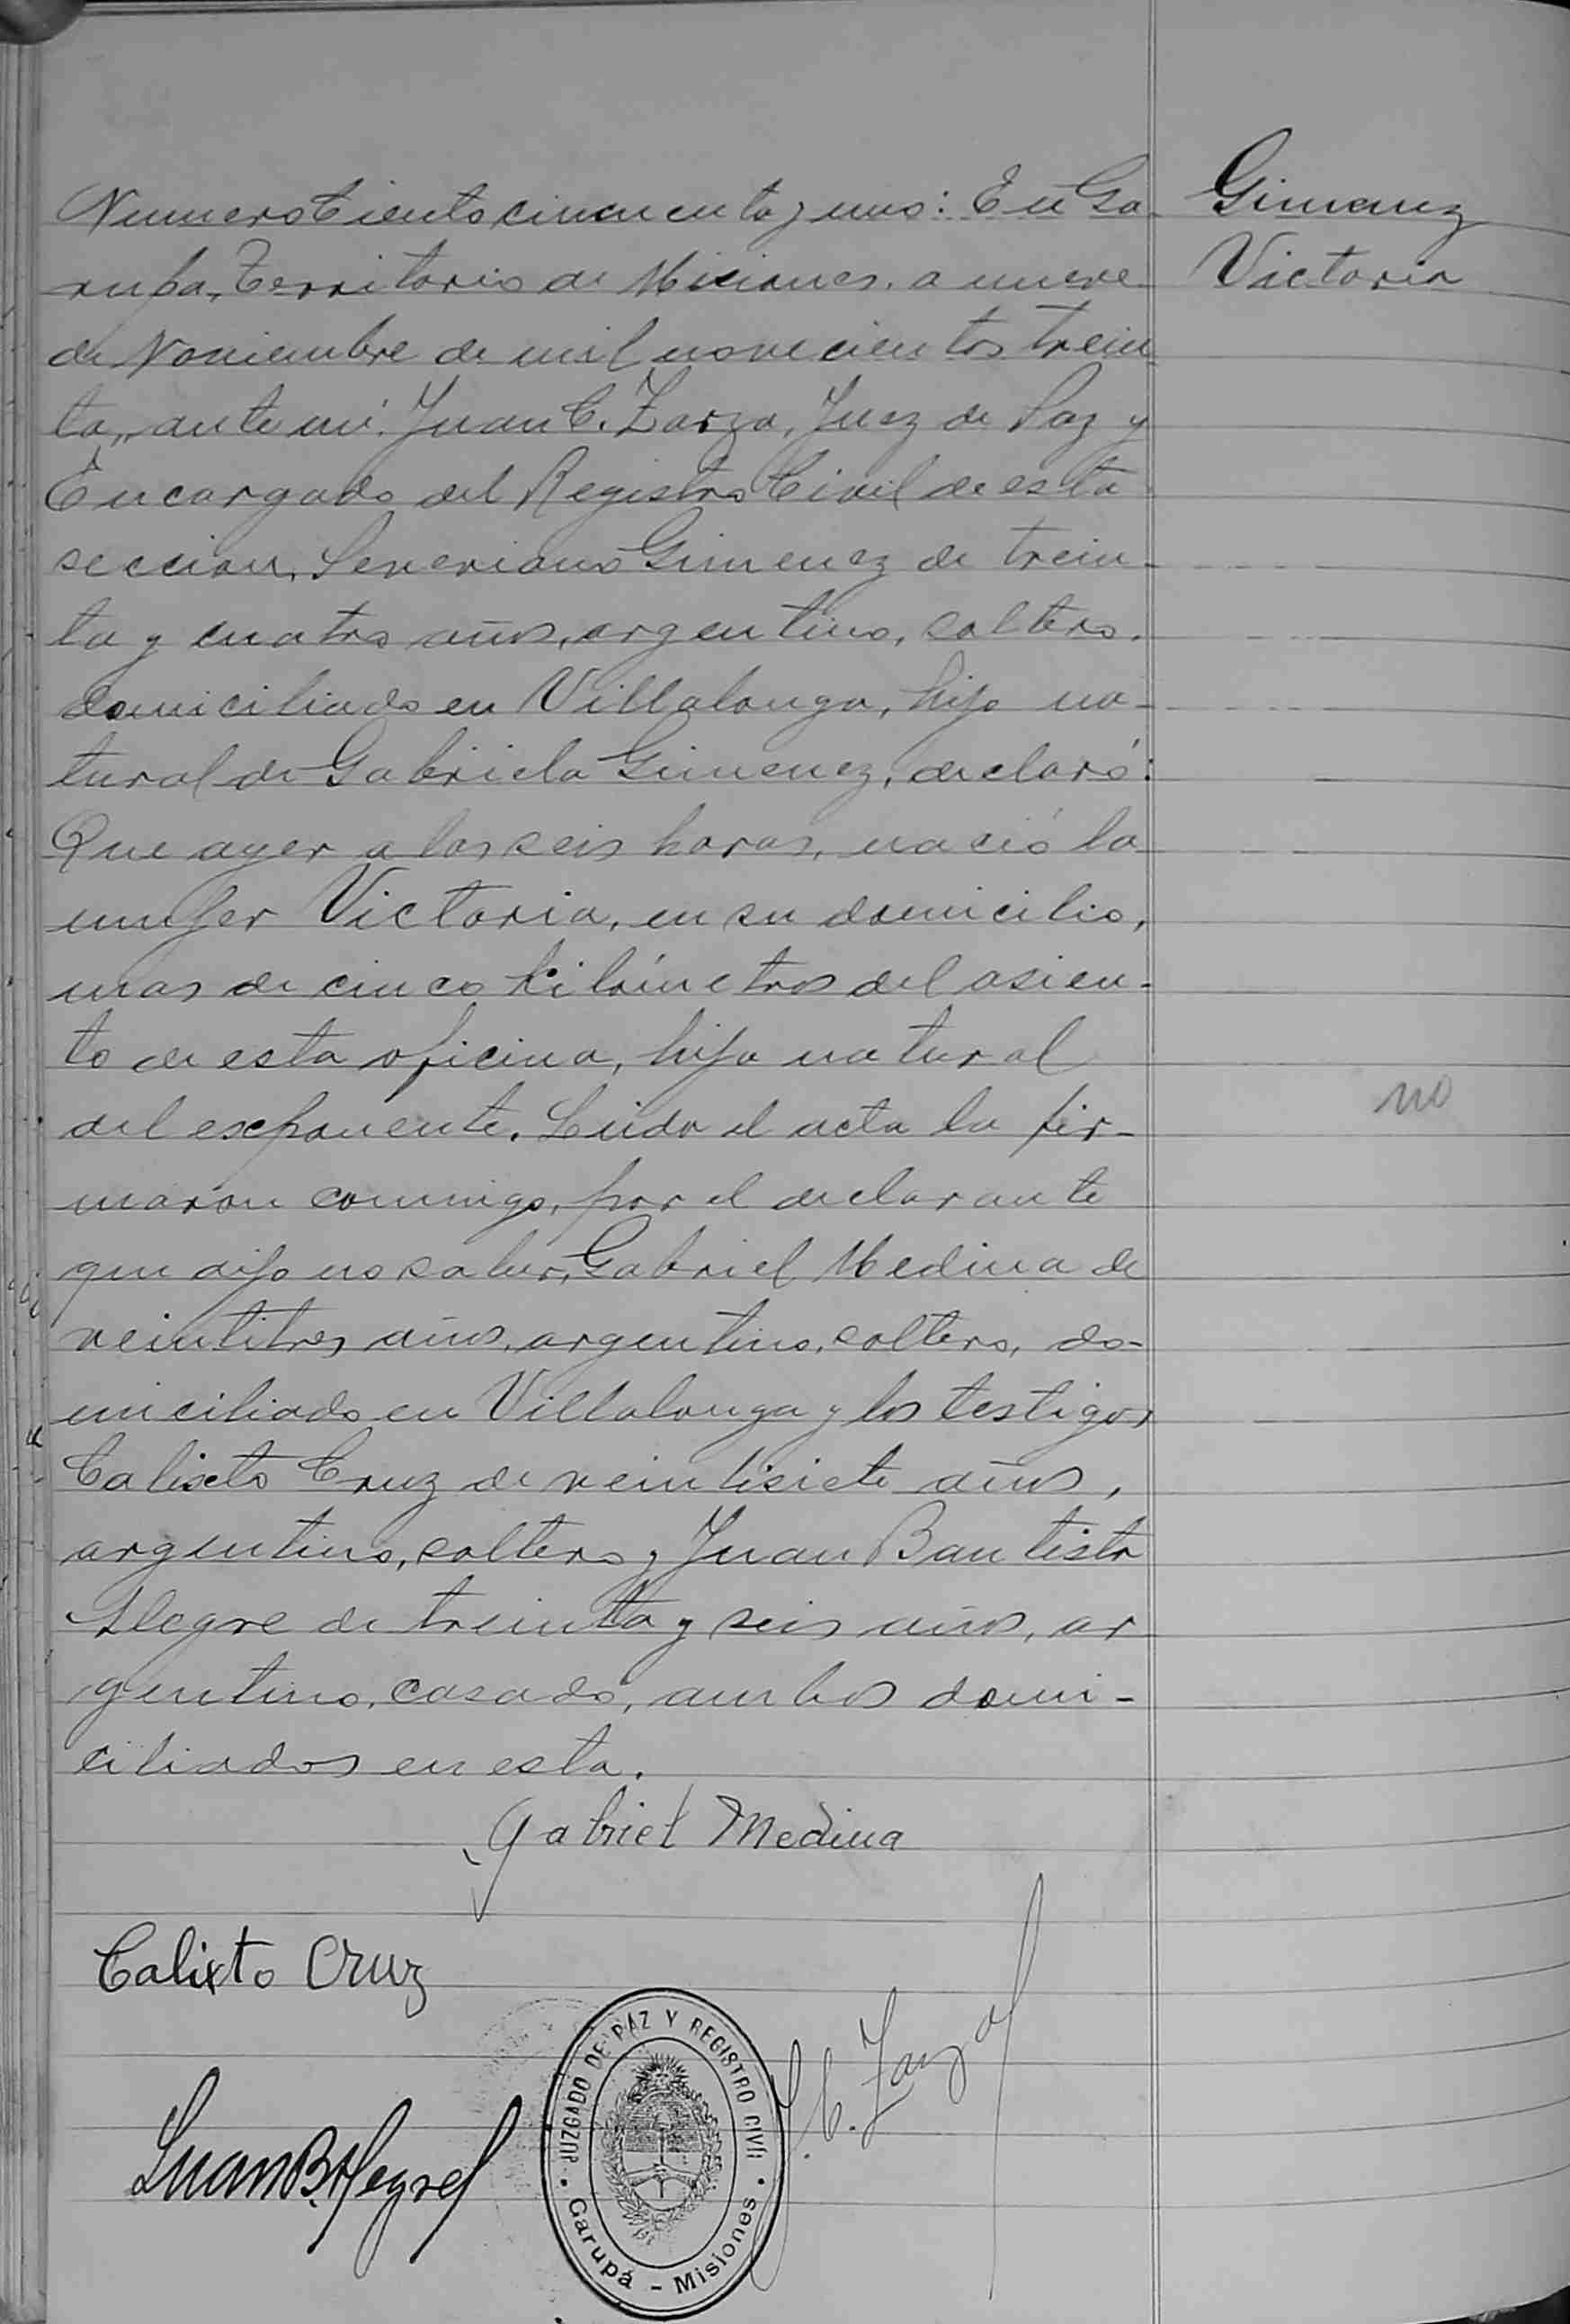 Gimenez
Victoria
Numero Ciento cincuenta y uno: En Ga-
rupa, Territorio de Misiones, a nueve
de Noviembre de mil novecientos trein
ta, ante mi: Juan C. Zarza, Juez de Paz y
Encargado del Registro Civil de esta
seccion, Severiano Gimenez de trein-
ta y cuatro años, argentino, soltero,
domiciliado en Villalonga, hijo na-
tural de Gabriela Gimenez, declaró:
Que ayer a las seis horas, nació la
mujer Victoria, en su domicilio,
mas de cinco kilómetros del asien-
to de esta oficina, hija natural
no
del exponente. Leida el acta la fir-
maron conmigo, por el declarante
que dijo no saber, Gabriel Medina de
veintitres años, argentino, soltero, do-
miciliado en Villalonga y los testigos
Calixto Cruz de veintisiete años,
argentino, soltero y Juan Bautista
Alegre de treinta y seis años, ar
gentino, casado, ambos domi-
ciliados en esta.
Gabriel Medina
Calixto Cruz
J. C. Zarza
Juan B. Alegre
JUZGADO DE PAZ Y REGISTRO CIVIL
Garupá - Misiones